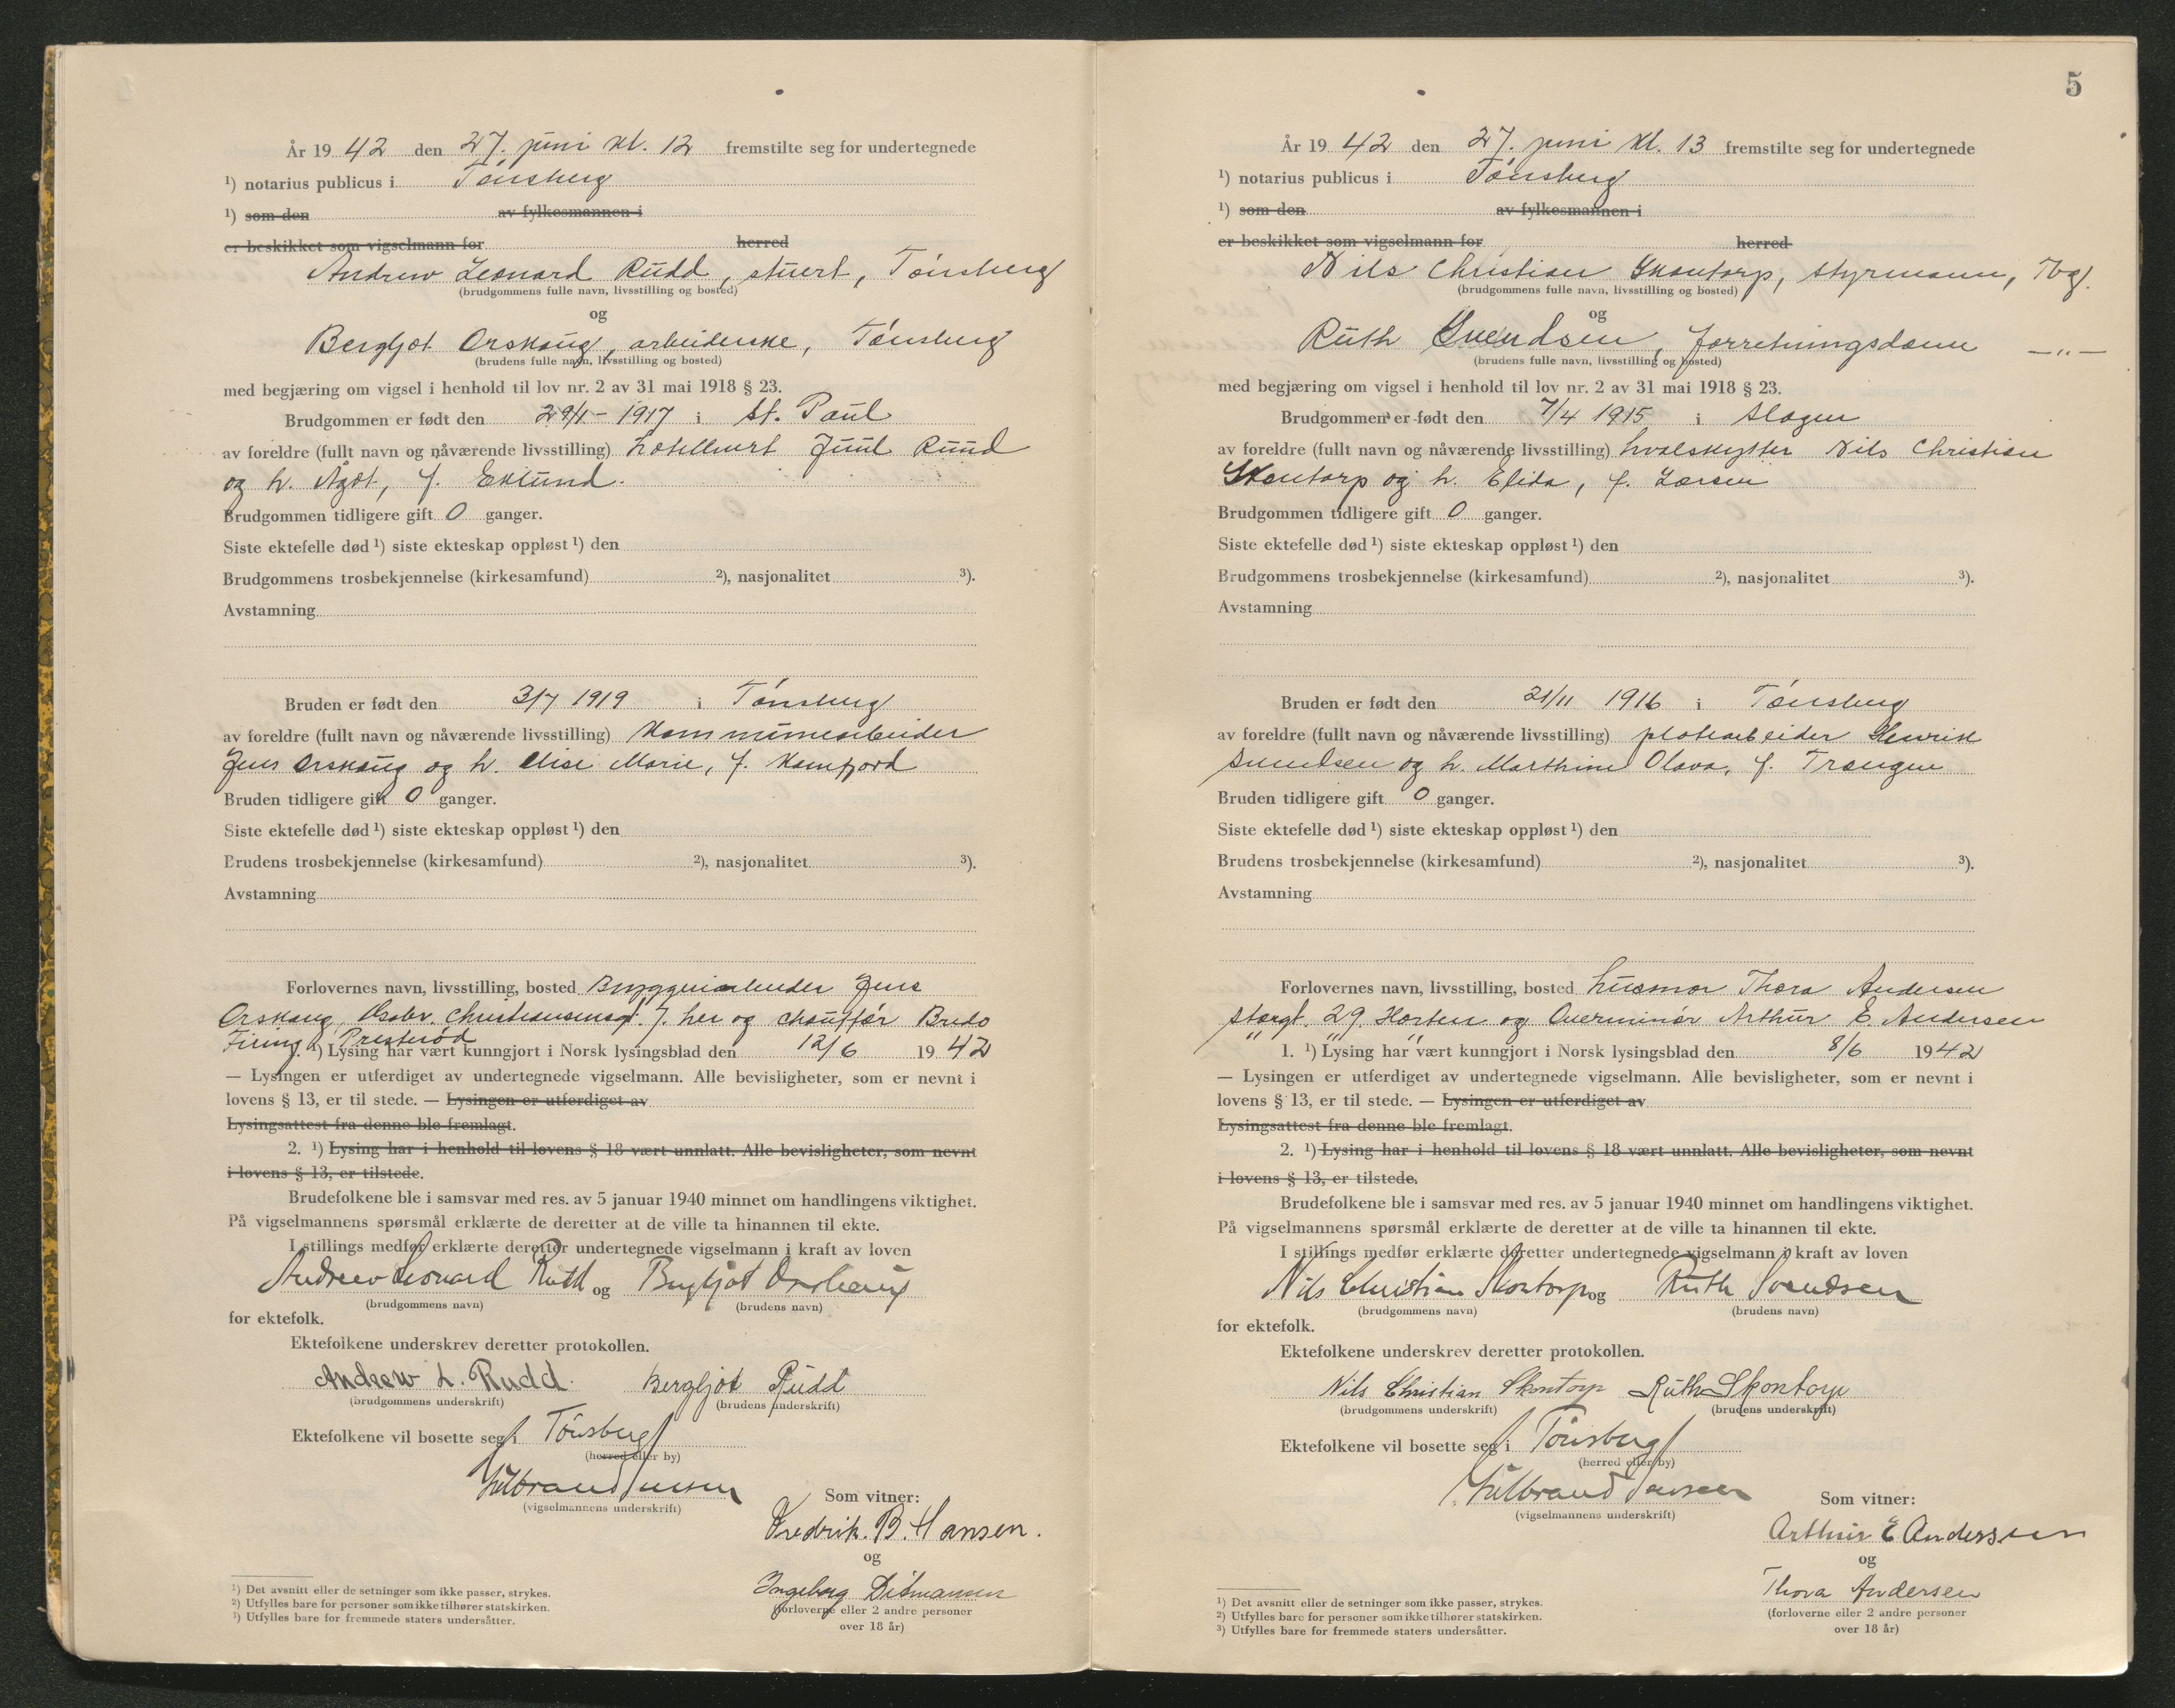 År 1942 den 27. juni kl. 12 fremstilte seg for undertegnede
¹) notarius publicus i Tønsberg
¹) som den av fylkesmannen i
er beskikket som vigselmann for herred
Andrew Leonard Rudd, stuert, Tønsberg
(brudgommens fulle navn, livsstilling og bosted)
og
Bergljot Orskaug, arbeiderske, Tønsberg
(brudens fulle navn, livsstilling og bosted)
med begjæring om vigsel i henhold til lov nr. 2 av 31 mai 1918 § 23.
Brudgommen er født den 29/1 - 1917 i St. Paul
av foreldre (fullt navn og nåværende livsstilling) hotellvert Juul Ruud
og h. Ågot, f. Eklund.
Brudgommen tidligere gift 0 ganger.
Siste ektefelle død ¹) siste ekteskap oppløst ¹) den
Brudgommens trosbekjennelse (kirkesamfund) ²), nasjonalitet ³).
Avstamning
Bruden er født den 3/7 1919 i Tønsberg
av foreldre (fullt navn og nåværende livsstilling) kommunearbeider
Jens Orskaug og h. Elise Marie, f. Kamfjord
Bruden tidligere gift 0 ganger.
Siste ektefelle død ¹) siste ekteskap oppløst ¹) den
Brudens trosbekjennelse (kirkesamfund) ²), nasjonalitet ³).
Avstamning
Forlovernes navn, livsstilling, bosted Bryggeriarbeider Jens
Orskaug, 7. her og chauffør Bredo
Presterød
1. ¹) Lysing har vært kunngjort i Norsk lysingsblad den 12/6 1942
— Lysingen er utferdiget av undertegnede vigselmann. Alle bevisligheter, som er nevnt i
lovens § 13, er til stede. — Lysingen er utferdiget av
Lysingsattest fra denne ble fremlagt.
2. ¹) Lysing har i henhold til lovens § 18 vært unnlatt. Alle bevisligheter, som nevnt
i lovens § 13, er tilstede.
Brudefolkene ble i samsvar med res. av 5 januar 1940 minnet om handlingens viktighet.
På vigselmannens spørsmål erklærte de deretter at de ville ta hinannen til ekte.
I stillings medfør erklærte deretter undertegnede vigselmann i kraft av loven
Andrew Leonard Rudd og Bergljot Orskaug
(brudgommens navn) (brudens navn)
for ektefolk.
Ektefolkene underskrev deretter protokollen.
Andrew L. Rudd. Bergljot Rudd
(brudgommens underskrift) (brudens underskrift)
Ektefolkene vil bosette seg i Tønsberg
(herred eller by)
(vigselmannens underskrift)
Som vitner:
Fredrik. B. Hansen.
og
Ingeborg Ditmansen
(forloverne eller 2 andre personer
over 18 år)
¹) Det avsnitt eller de setninger som ikke passer, strykes.
²) Utfylles bare for personer som ikke tilhører statskirken.
³) Utfylles bare for fremmede staters undersåtter.
5
År 1942 den 27. juni kl. 13 fremstilte seg for undertegnede
¹) notarius publicus i Tønsberg
¹) som den av fylkesmannen i
er beskikket som vigselmann for herred
Nils Christian Skontorp, styrmann, Tbg.
(brudgommens fulle navn, livsstilling og bosted)
og
Ruth Svendsen, forretningsdame —"—
(brudens fulle navn, livsstilling og bosted)
med begjæring om vigsel i henhold til lov nr. 2 av 31 mai 1918 § 23.
Brudgommen er født den 7/4 1915 i Slagen
av foreldre (fullt navn og nåværende livsstilling) hvalskytter Nils Christian
Skontorp og h. Elida, f. Larsen
Brudgommen tidligere gift 0 ganger.
Siste ektefelle død ¹) siste ekteskap oppløst ¹) den
Brudgommens trosbekjennelse (kirkesamfund) ²), nasjonalitet ³).
Avstamning
Bruden er født den 21/11 1916 i Tønsberg
av foreldre (fullt navn og nåværende livsstilling) platearbeider Henrik
Svendsen og h. Marthine Olava, f. Trangen
Bruden tidligere gift 0 ganger.
Siste ektefelle død ¹) siste ekteskap oppløst ¹) den
Brudens trosbekjennelse (kirkesamfund) ²), nasjonalitet ³).
Avstamning
Forlovernes navn, livsstilling, bosted husmor Thora Andersen
Storgt. 29. Horten og Overminør Arthur E. Andersen
" " "
1. ¹) Lysing har vært kunngjort i Norsk lysingsblad den 8/6 1942
— Lysingen er utferdiget av undertegnede vigselmann. Alle bevisligheter, som er nevnt i
lovens § 13, er til stede. — Lysingen er utferdiget av
Lysingsattest fra denne ble fremlagt.
2. ¹) Lysing har i henhold til lovens § 18 vært unnlatt. Alle bevisligheter, som nevnt
i lovens § 13, er tilstede.
Brudefolkene ble i samsvar med res. av 5 januar 1940 minnet om handlingens viktighet.
På vigselmannens spørsmål erklærte de deretter at de ville ta hinannen til ekte.
I stillings medfør erklærte deretter undertegnede vigselmann i kraft av loven
Nils Christian Skontorp og Ruth Svendsen
(brudgommens navn) (brudens navn)
for ektefolk.
Ektefolkene underskrev deretter protokollen.
Nils Christian Skontorp Ruth Skontorp
(brudgommens underskrift) (brudens underskrift)
Ektefolkene vil bosette seg i Tønsberg
(herred eller by)
(vigselmannens underskrift)
Som vitner:
Arthur E Andersen
og
Thora Andersen
(forloverne eller 2 andre personer
over 18 år)
¹) Det avsnitt eller de setninger som ikke passer, strykes.
²) Utfylles bare for personer som ikke tilhører statskirken.
³) Utfylles bare for fremmede staters undersåtter.